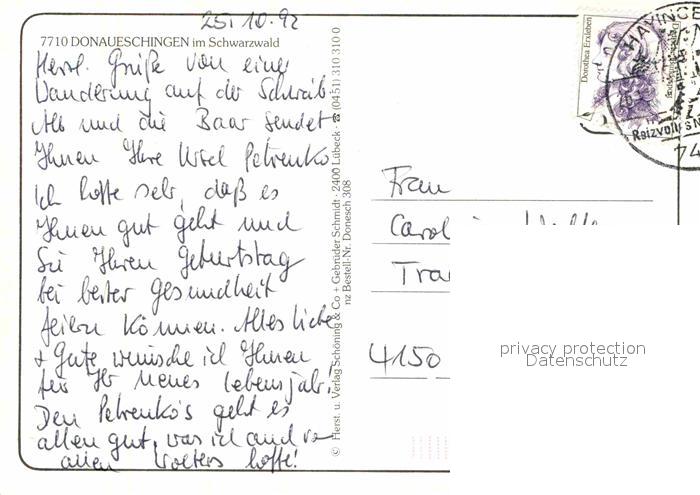 25.10.92
7710 DONAUESCHINGEN im Schwarzwald
Herzl. Grüße von einer
Wanderung auf der Schwäb.
Alb und die Baar sendet
Ihnen Ihre Ursel Petrenko
Ich hoffe sehr, daß es
Ihnen gut geht und
Sie Ihren Geburtstag
bei bester Gesundheit
feiern können. Alles Liebe
+ Gute wünsche ich Ihnen
für Ihr neues Lebensjahr!
Den Petrenko's geht es
allen gut, was ich auch von
allen Wolters hoffe!
© Herst. u. Verlag Schöning & Co + Gebrüder Schmidt · 2400 Lübeck · ☎ (04 51) 310 310 0
nz Bestell-Nr. Donesch 308
Dorothea Erxleben
Deutsche Bundespost
HAYINGE
Reizvoll
74
Frau
Carol
Tra
4150
privacy protection
Datenschutz